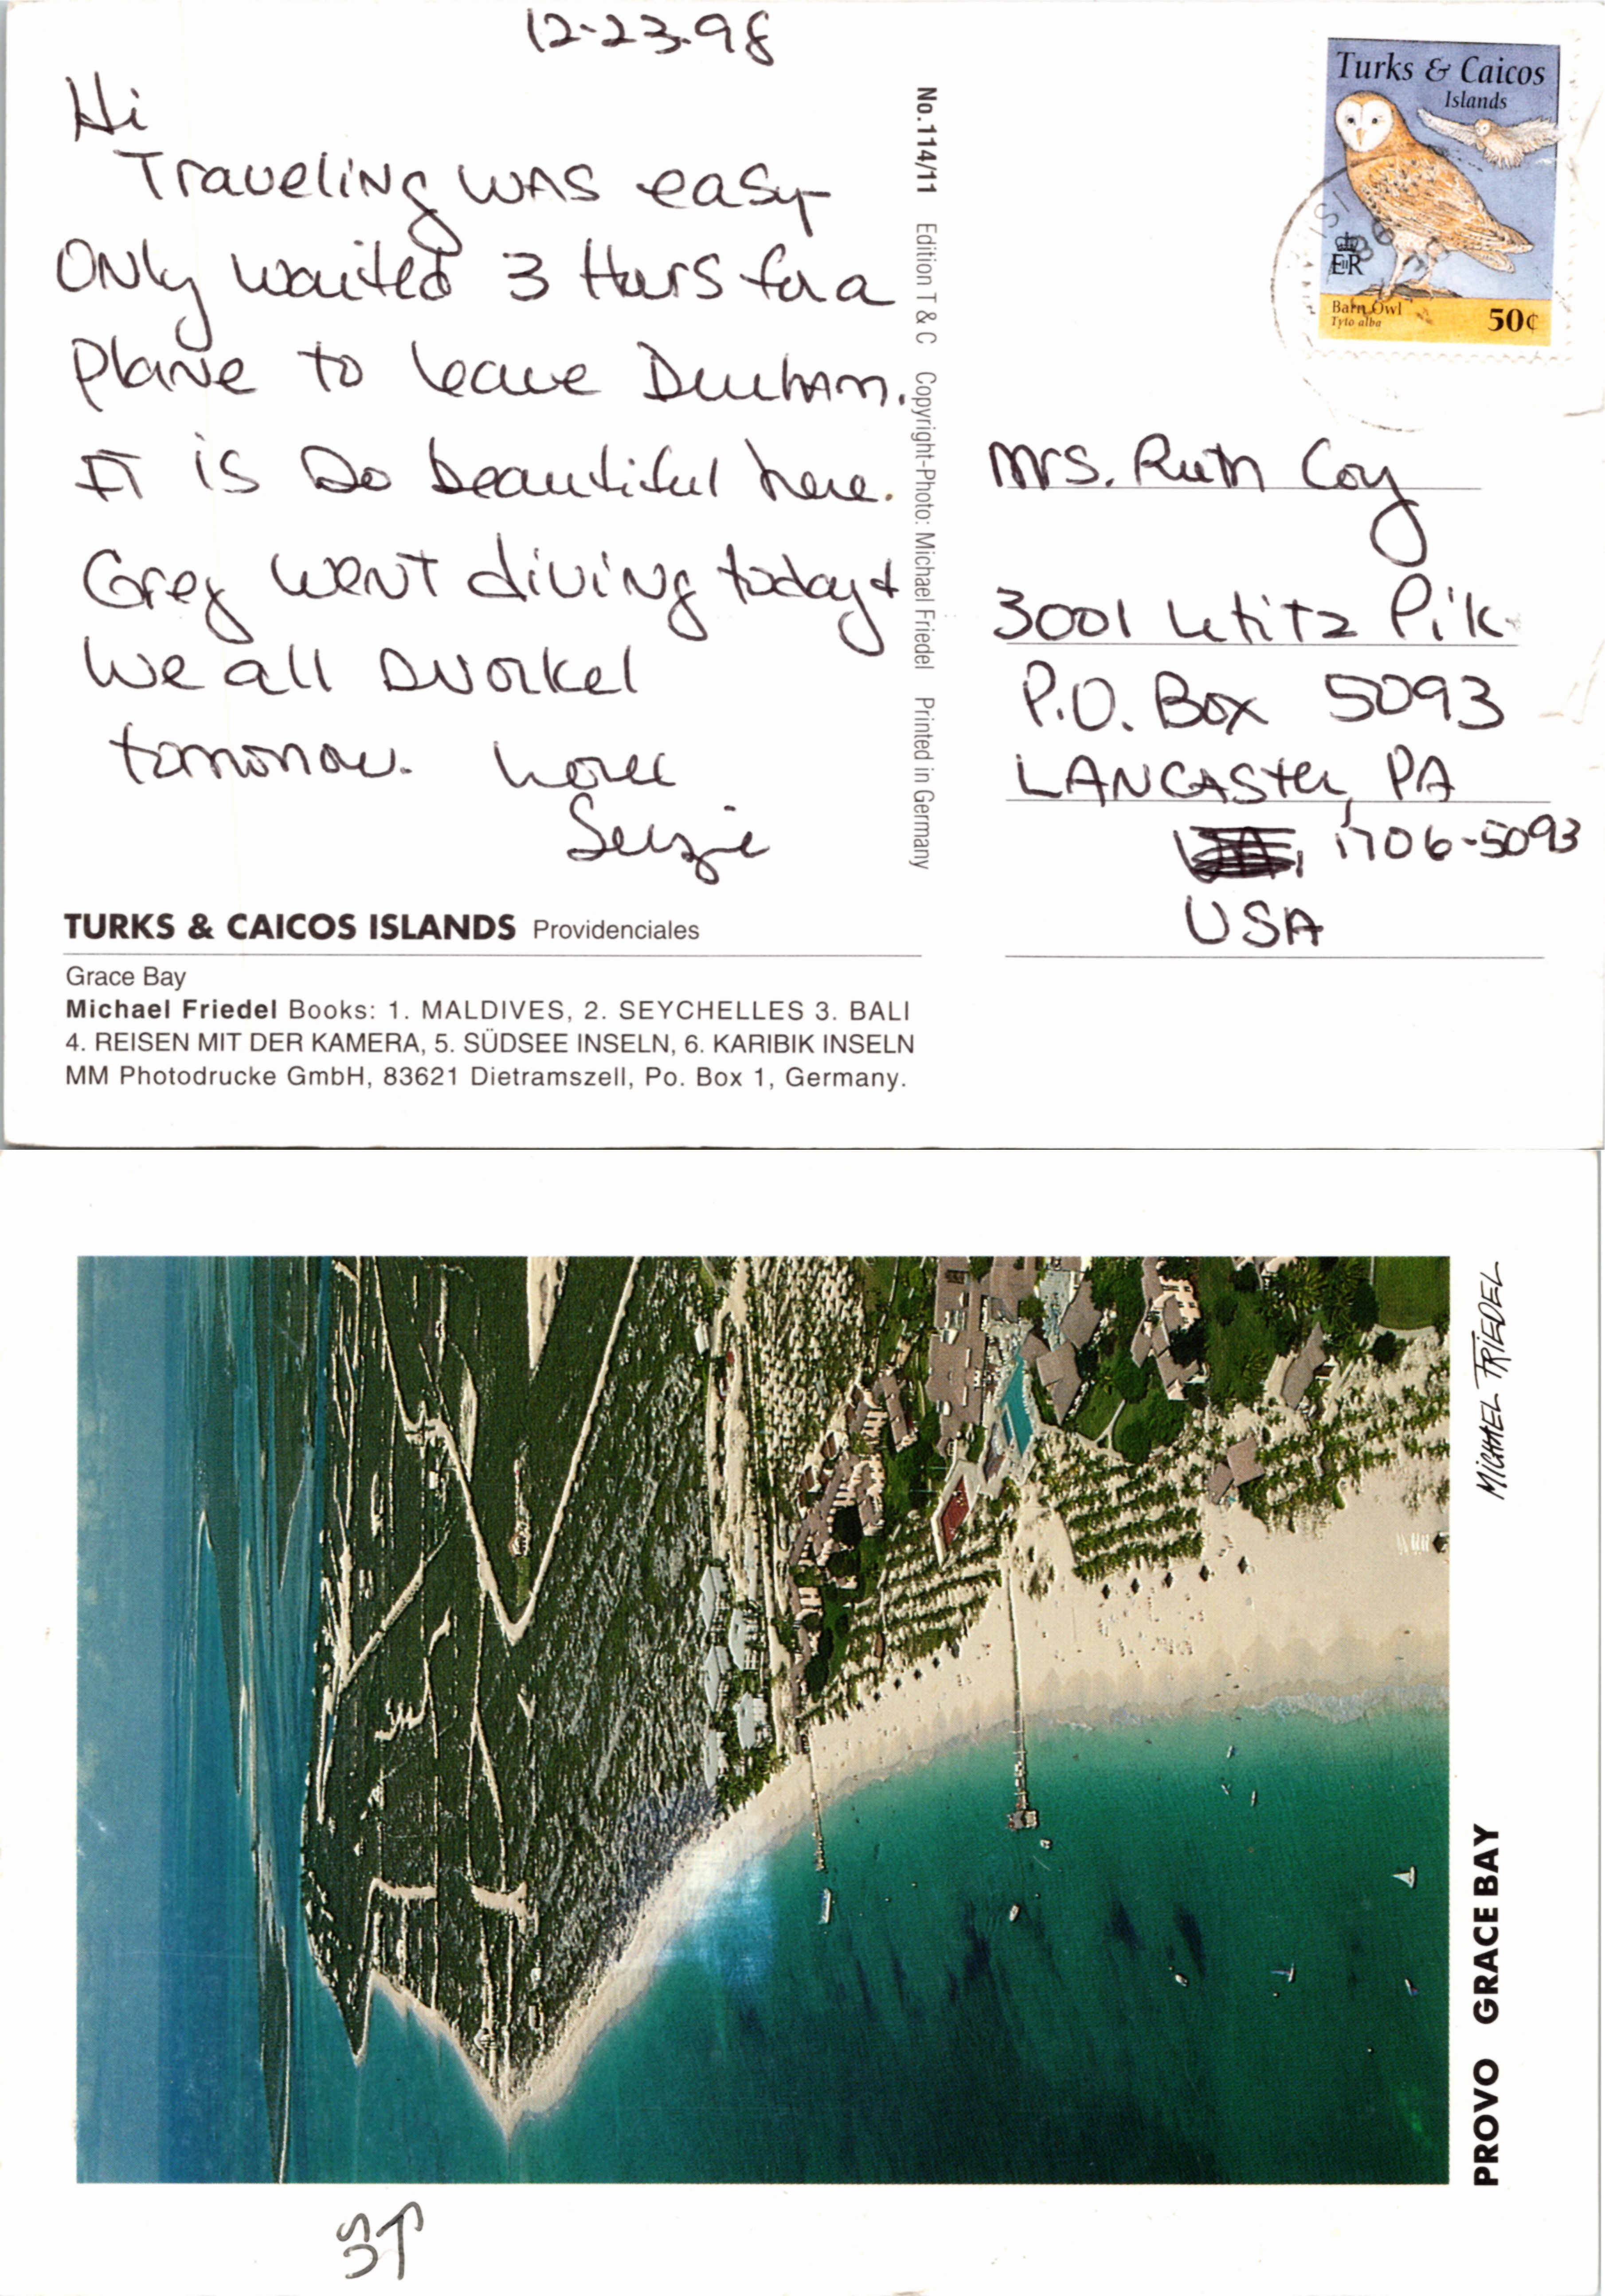 12-23-98
Hi
Traveling was easy-
Only waited 3 Hours for a
plane to leave Durham.
It is so beautiful here.
Greg went diving today &
we all snorkel
tomorrow. Love
Suzie
TURKS & CAICOS ISLANDS Providenciales
Grace Bay
Michael Friedel Books: 1. MALDIVES, 2. SEYCHELLES 3. BALI
4. REISEN MIT DER KAMERA, 5. SÜDSEE INSELN, 6. KARIBIK INSELN
MM Photodrucke GmbH, 83621 Dietramszell, Po. Box 1, Germany.
No.114/11 Edition T & C Copyright-Photo: Michael Friedel Printed in Germany
Turks & Caicos
Islands
EIIR
Barn Owl
Tyto alba
50¢
Mrs. Ruth Coy
3001 Lititz Pik
P.O. Box 5093
LANCASter, PA
1706-5093
USA
MICHAEL FRIEDEL
PROVO GRACE BAY